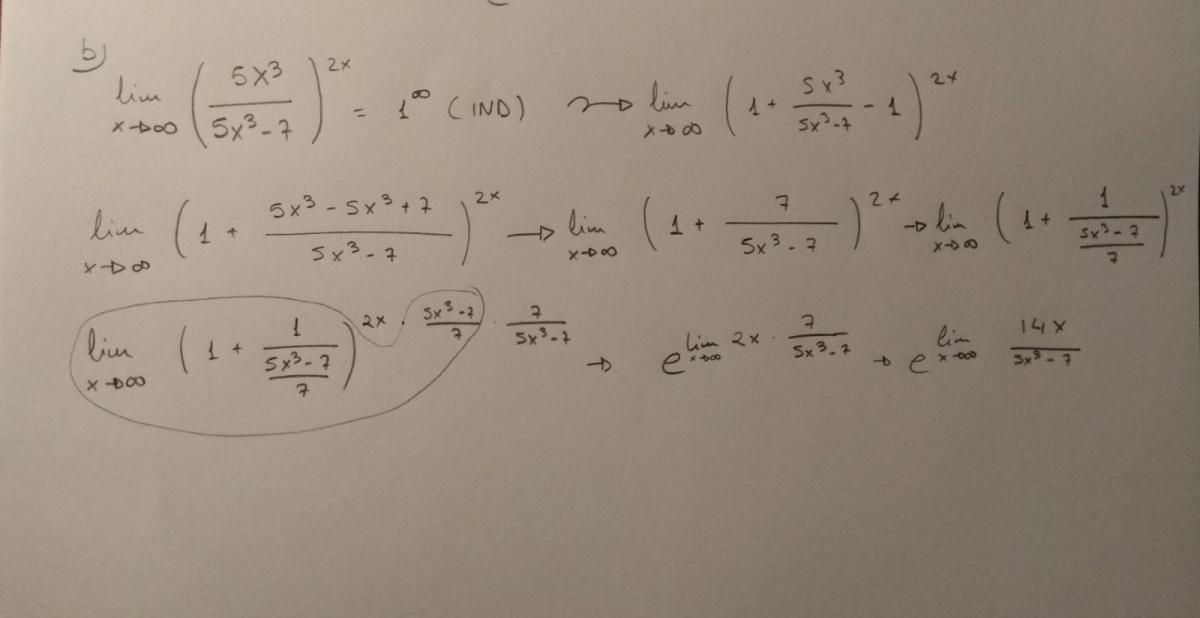 b) lim x→∞ (5x³/(5x³-7))^2x = 1^∞ (IND) ⇝ lim x→∞ (1 + 5x³/(5x³-7) - 1)^2x
lim x→∞ (1 + (5x³-5x³+7)/(5x³-7))^2x → lim x→∞ (1 + 7/(5x³-7))^2x → lim x→∞ (1 + 1/((5x³-7)/7))^2x
lim x→∞ (1 + 1/((5x³-7)/7))^(2x · (5x³-7)/7 · 7/(5x³-7)) → e^(lim x→∞ 2x · 7/(5x³-7)) → e^(lim x→∞ 14x/(5x³-7))